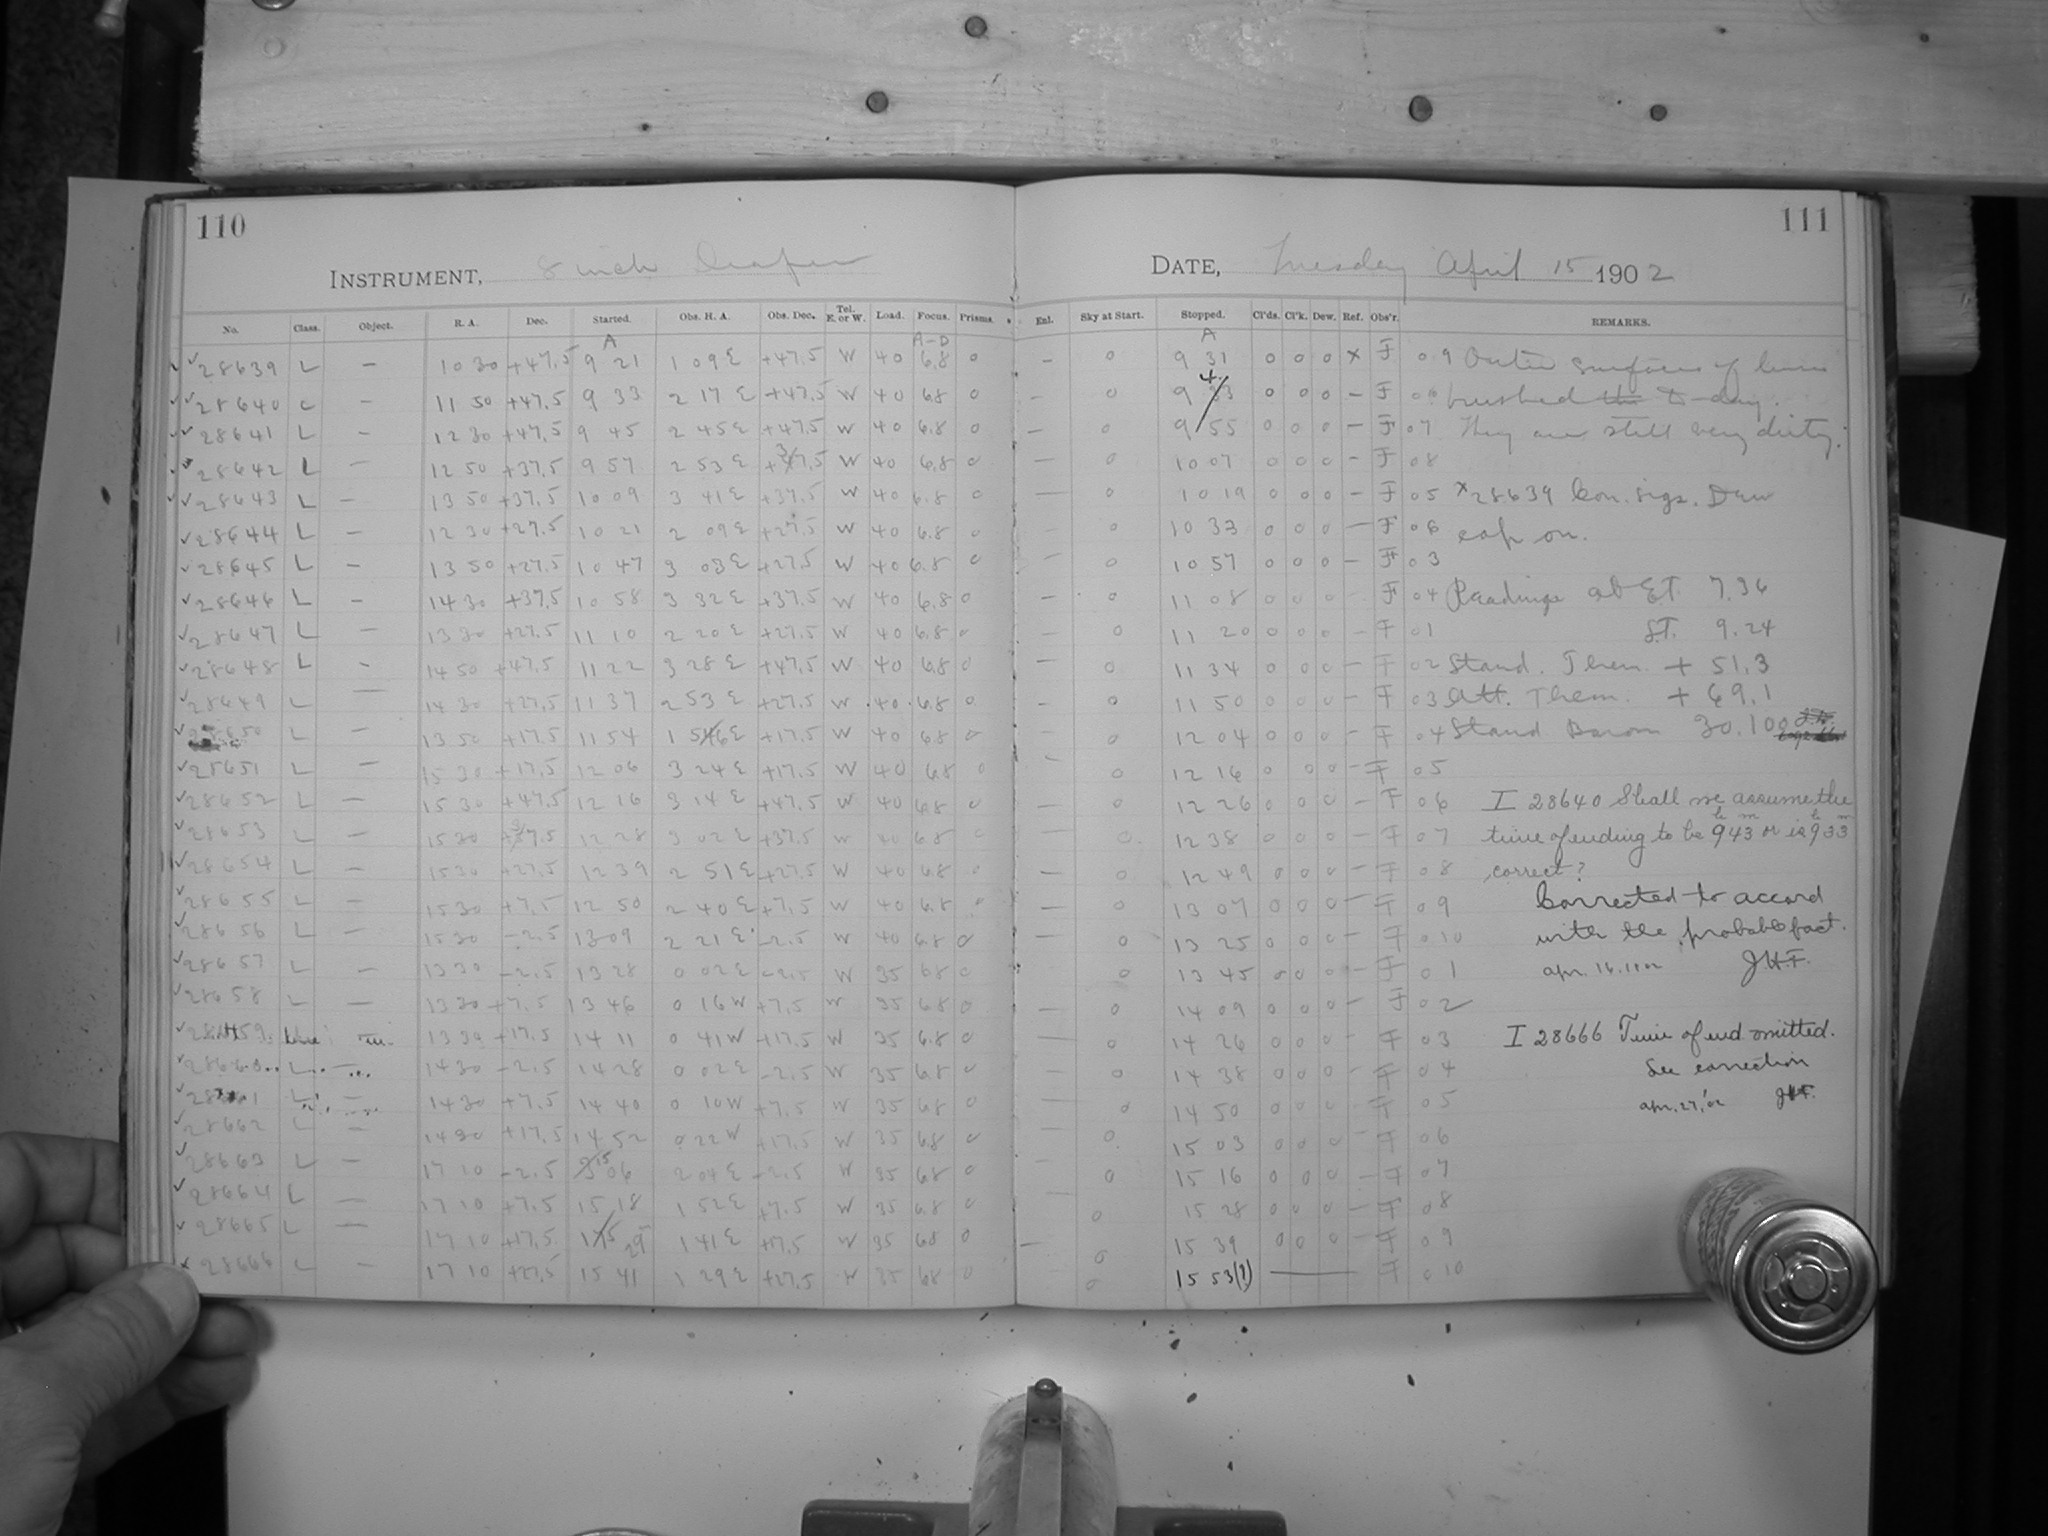 110
111
INSTRUMENT, 8 inch Draper
DATE, Tuesday April 15 1902
No. Class. Object. R. A. Dec. Started. Obs. H. A. Obs. Dec. Tel. E. or W. Load. Focus. Prisms. Enl. Sky at Start. Stopped. Cl'ds. Cl'k. Dew. Ref. Obs'r. REMARKS.
A A-D A
28639 L — 10 30 +47.5 9 21 1 09 E +47.5 W 40 6.8 0 — 0 9 31 0 0 0 x F 09 Outer surfaces of lens
28640 L — 11 50 +47.5 9 33 2 17 E +47.5 W 40 6.8 0 — 0 9 43 0 0 0 — F 06 brushed to-day.
28641 L — 12 30 +47.5 9 45 2 45 E +47.5 W 40 6.8 0 — 0 9 55 0 0 0 — F 07 They are still very dirty.
28642 L — 12 50 +37.5 9 57 2 53 E +37.5 W 40 6.8 0 — 0 10 07 0 0 0 — F 08
28643 L — 13 50 +37.5 10 09 3 41 E +37.5 W 40 6.8 0 — 0 10 19 0 0 0 — F 05 x28639 Con. sigs. Dew
28644 L — 12 30 +27.5 10 21 2 09 E +27.5 W 40 6.8 0 — 0 10 33 0 0 0 — F 06 cap on.
28645 L — 13 50 +27.5 10 47 3 03 E +27.5 W 40 6.8 0 — 0 10 57 0 0 0 — F 03
28646 L — 14 30 +37.5 10 58 3 32 E +37.5 W 40 6.8 0 — 0 11 08 0 0 0 F 04 Readings at E.T. 7.36
28647 L — 13 30 +27.5 11 10 2 20 E +27.5 W 40 6.8 0 — 0 11 20 0 0 0 — F 01 S.T. 9.24
28648 L — 14 50 +47.5 11 22 3 28 E +47.5 W 40 6.8 0 — 0 11 34 0 0 0 — F 02 Stand. Therm. + 51.3
28649 L — 14 30 +27.5 11 37 2 53 E +27.5 W 40 6.8 0 — 0 11 50 0 0 0 — F 03 Att. Therm. + 69.1
28650 L — 13 50 +17.5 11 54 1 56 E +17.5 W 40 6.8 0 — 0 12 04 0 0 0 — F 04 Stand Barom 30.100
28651 L — 15 30 +17.5 12 06 3 24 E +17.5 W 40 6.8 0 — 0 12 16 0 0 0 — F 05
28652 L — 15 30 +47.5 12 16 3 14 E +47.5 W 40 6.8 0 — 0 12 26 0 0 0 — F 06 I 28640 Shall we assume the
28653 L — 15 30 +37.5 12 28 3 02 E +37.5 W 40 6.8 0 — 0 12 38 0 0 0 — F 07 time of ending to be 9h 43m or is 9h 33m
28654 L — 15 30 +27.5 12 39 2 51 E +27.5 W 40 6.8 0 — 0 12 49 0 0 0 — F 08 correct?
28655 L — 15 30 +7.5 12 50 2 40 E +7.5 W 40 6.8 0 — 0 13 07 0 0 0 — F 09 Corrected to accord
28656 L — 15 30 -2.5 13 09 2 21 E -2.5 W 40 6.8 0 — 0 13 25 0 0 0 — F 010 with the probable fact.
28657 L — 13 30 -2.5 13 28 0 02 E -2.5 W 35 6.8 0 — 0 13 45 0 0 0 — F 01 Apr. 16. 1902 J.H.F.
28658 L — 13 30 +7.5 13 46 0 16 W +7.5 W 35 6.8 0 — 0 14 09 0 0 0 — F 02
28659 13 30 +17.5 14 11 0 41 W +17.5 W 35 6.8 0 — 0 14 26 0 0 0 — F 03 I 28666 Time of end omitted.
28660 L — 14 30 -2.5 14 28 0 02 E -2.5 W 35 6.8 0 — 0 14 38 0 0 0 — F 04 See correction
28661 L — 14 30 +7.5 14 40 0 10 W +7.5 W 35 6.8 0 — 0 14 50 0 0 0 — F 05 Apr. 27, '02 J.H.F.
28662 L — 14 30 +17.5 14 52 0 22 W +17.5 W 35 6.8 0 — 0 15 03 0 0 0 — F 06
28663 L — 17 10 -2.5 15 06 2 04 E -2.5 W 35 6.8 0 — 0 15 16 0 0 0 — F 07
28664 L — 17 10 +7.5 15 18 1 52 E +7.5 W 35 6.8 0 — 0 15 28 0 0 0 — F 08
28665 L — 17 10 +17.5 15 29 1 41 E +17.5 W 35 6.8 0 — 0 15 39 0 0 0 — F 09
28666 L — 17 10 +27.5 15 41 1 29 E +27.5 W 35 6.8 0 0 15 53(?) — F 010